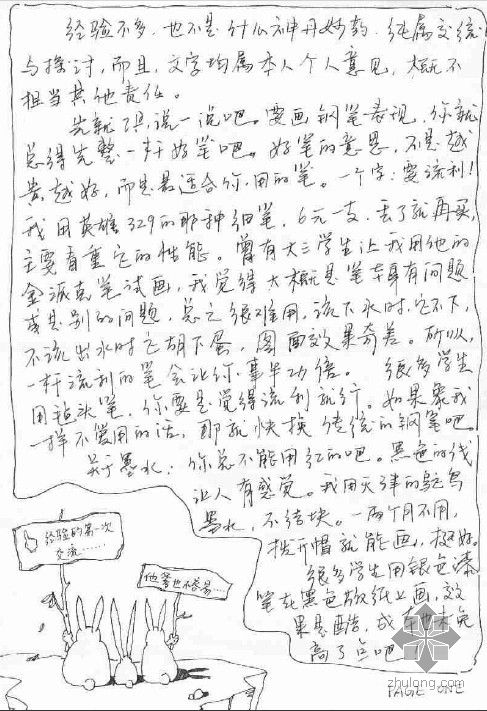 经验不多，也不是什么神丹妙药，纯属交流
与探讨，而且，文字均属本人个人意见，概不
担当其他责任。
先就工具说一说吧。要画钢笔表现，你就
总得先整一杆好笔吧。好笔的意思，不是越
贵越好，而是最适合你用的笔。一个字：要流利！
我用英雄329的那种细笔，6元一支，丢了就再买，
主要看重它的性能。曾有大三学生让我用他的
金派克笔试画，我觉得大概是笔本身有问题
或是别的问题，总之很难用，该下水时，它不下，
不该出水时它胡下蛋，图面效果奇差。所以，
一杆流利的笔会让你事半功倍。 很多学生
用针水笔，你要是觉得流利就行。如果象我
一样不爱用的话，那就快换传统的钢笔吧
关于墨水：你总不能用红的吧。黑色的线
让人有感觉。我用天津的鸵鸟
墨水，不结块。一两个月不用，
拔开帽就能画，挺好。
很多学生用银色漆
笔在黑色纸上画，效
果是酷，成本也未免
高了点吧！
经验的第一次
交流……
他笔也不容易…
PAGE ONE
zhulong.com